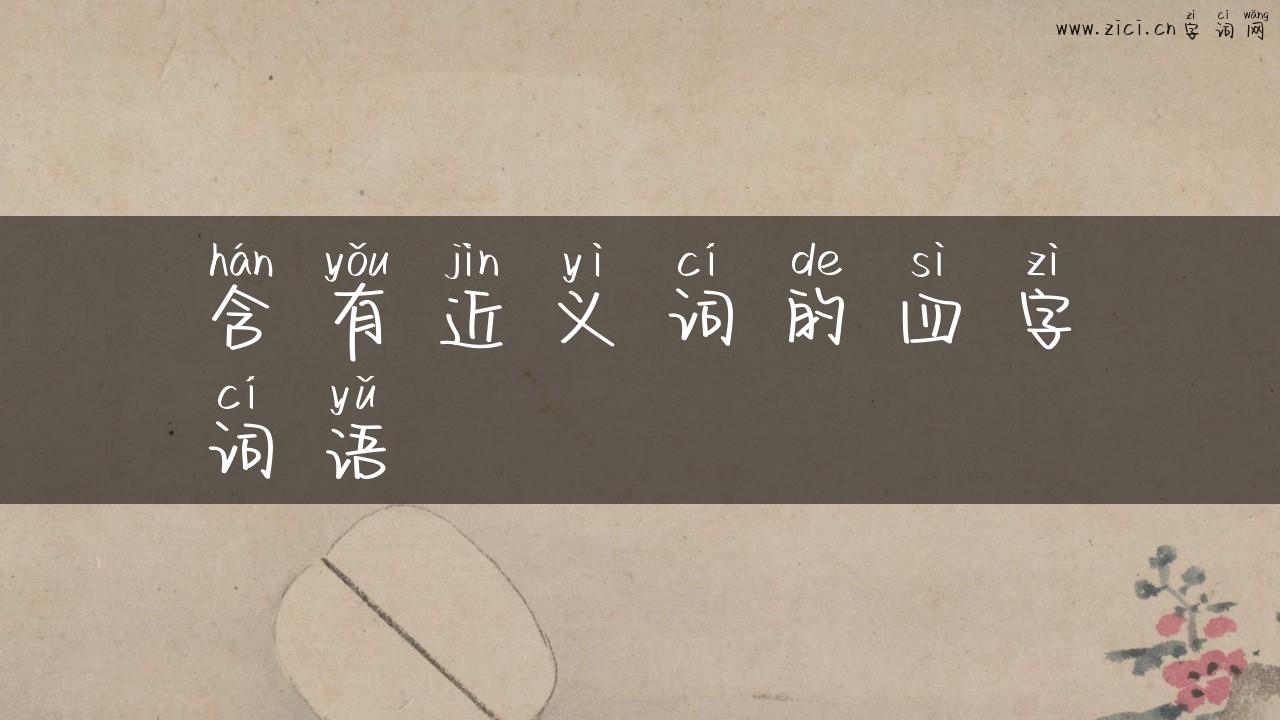 zì cí wǎng
www.zici.cn 字词网
hán yǒu jìn yì cí de sì zì
含有近义词的四字
cí yǔ
词语